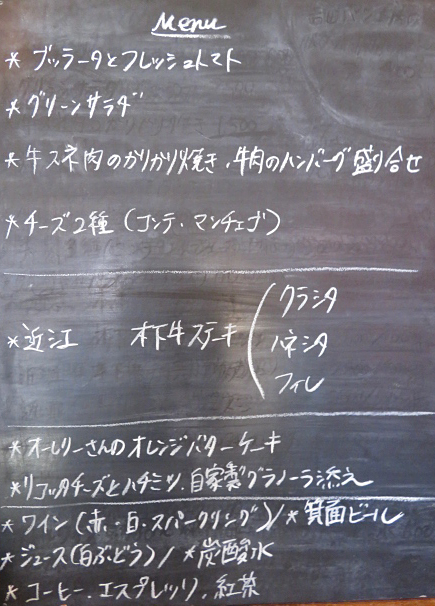 Menu
* ブッラータとフレッシュトマト
* グリーンサラダ
* 牛スネ肉のかりかり焼き、牛肉のハンバーグ盛り合せ
* チーズ2種（コンテ・マンチェゴ）
* 近江 木下牛ステーキ
クラシタ
ハネシタ
フィレ
* オーレリーさんのオレンジバターケーキ
* リコッタチーズとハチミツ、自家製グラノーラ添え
* ワイン（赤・白・スパークリング）/ * 箕面ビール
* ジュース（白ぶどう）/ * 炭酸水
* コーヒー、エスプレッソ、紅茶